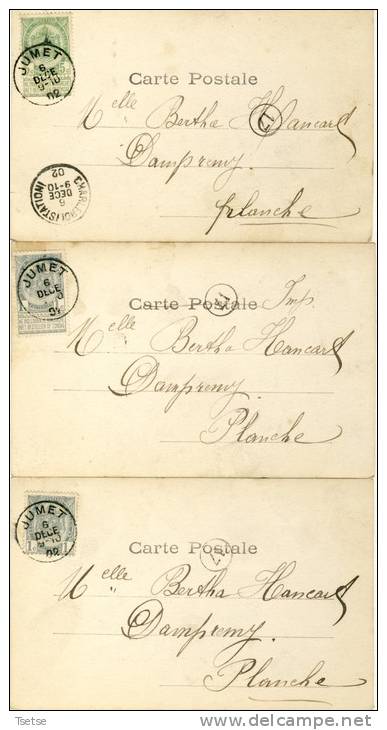 JUMET
6
DECE
9-10
02
Carte Postale
17
Melle Bertha Hancart
Dampremy
planche
CHARLEROI (STATION)
6
DECE
9-10
02
JUMET
6
DECE
Carte Postale
17
Imp
Melle Bertha Hancart
Dampremy
Planche
JUMET
6
DECE
9-10
02
Carte Postale
17
Melle Bertha Hancart
Dampremy
Planche
Tsetse
delcampe.net